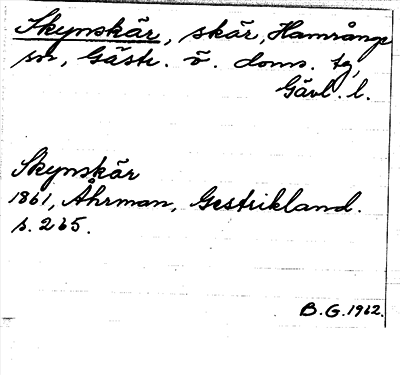 Skynskär, skär, Hamrånge
sn, Gästr. ö. doms. tg,
Gävl. l.
Skynskär
1861, Åhrman, Gestrikland.
s. 265.
B.G. 1962.